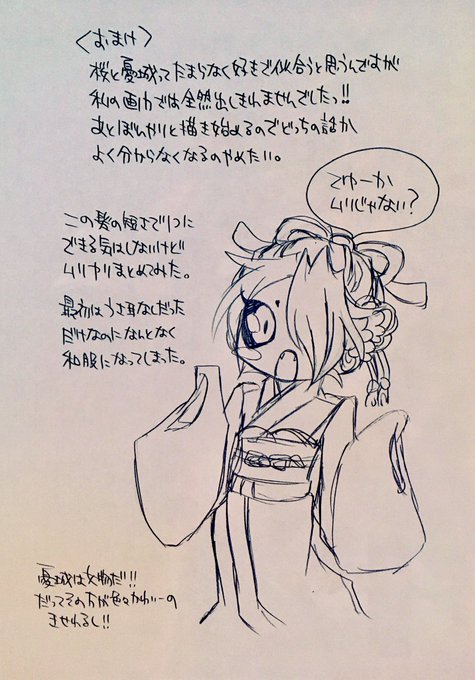 〈おまけ〉
桜と憂城ってたまらなく好きで似合うと思うんですが
私の画力では全然出しきれませんでしたっ!!
あとぼんやりと描き始めるのでどっちの話か
よく分からなくなるのやめたい。
でゆーか
ムリじゃない?
この髪の短さで1つに
できる気はしないけど
ムリヤリまとめてみた。
最初はうさ耳なしだった
だけなのになんとなく
和服になってしまった。
憂城は女物だ!!
だってその方が色々かわいーの
ませれるし!!